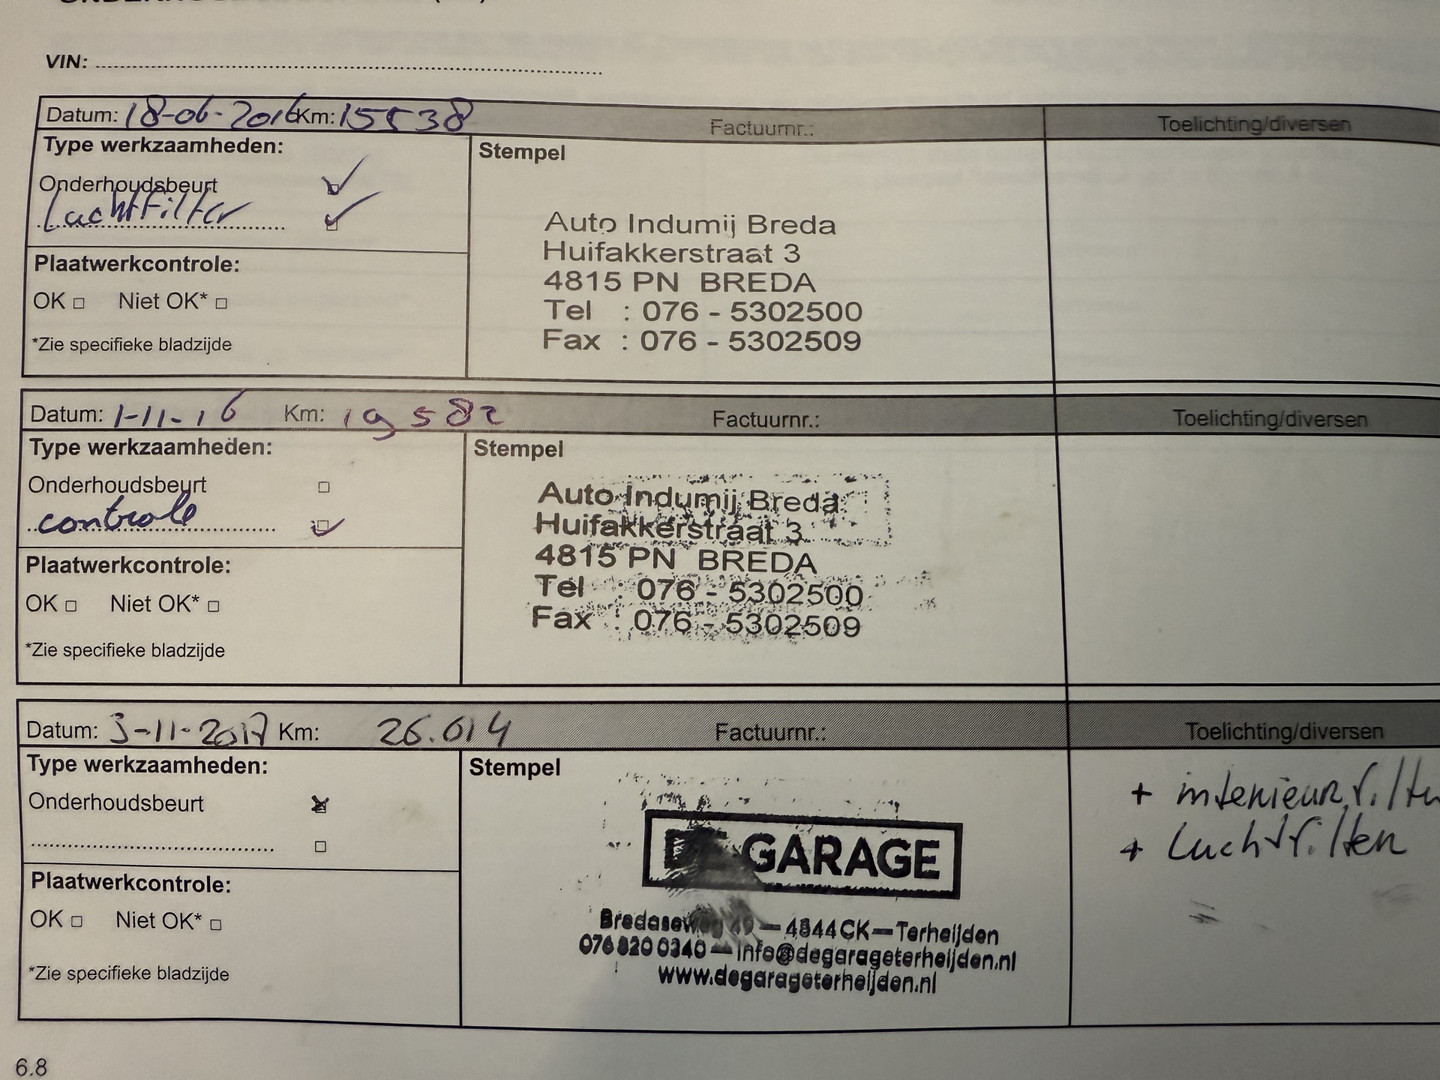 VIN:
Datum: 18-06-2016 Km: 15538 Factuurnr.: Toelichting/diversen
Type werkzaamheden:
Stempel
Onderhoudsbeurt
Luchtfilter
Plaatwerkcontrole:
OK Niet OK*
*Zie specifieke bladzijde
Auto Indumij Breda
Huifakkerstraat 3
4815 PN BREDA
Tel : 076 - 5302500
Fax : 076 - 5302509
Datum: 1-11-16 Km: 19582 Factuurnr.: Toelichting/diversen
Type werkzaamheden:
Stempel
Onderhoudsbeurt
controle
Plaatwerkcontrole:
OK Niet OK*
*Zie specifieke bladzijde
Auto Indumij Breda
Huifakkerstraat 3
4815 PN BREDA
Tel : 076 - 5302500
Fax : 076 - 5302509
Datum: 3-11-2017 Km: 26.614 Factuurnr.: Toelichting/diversen
Type werkzaamheden:
Stempel
Onderhoudsbeurt
Plaatwerkcontrole:
OK Niet OK*
*Zie specifieke bladzijde
GARAGE
Bredaseweg 49 — 4844 CK — Terheijden
076 820 0340 — info@degarageterheijden.nl
www.degarageterheijden.nl
+ interieurfilter
+ Luchtfilter
6.8